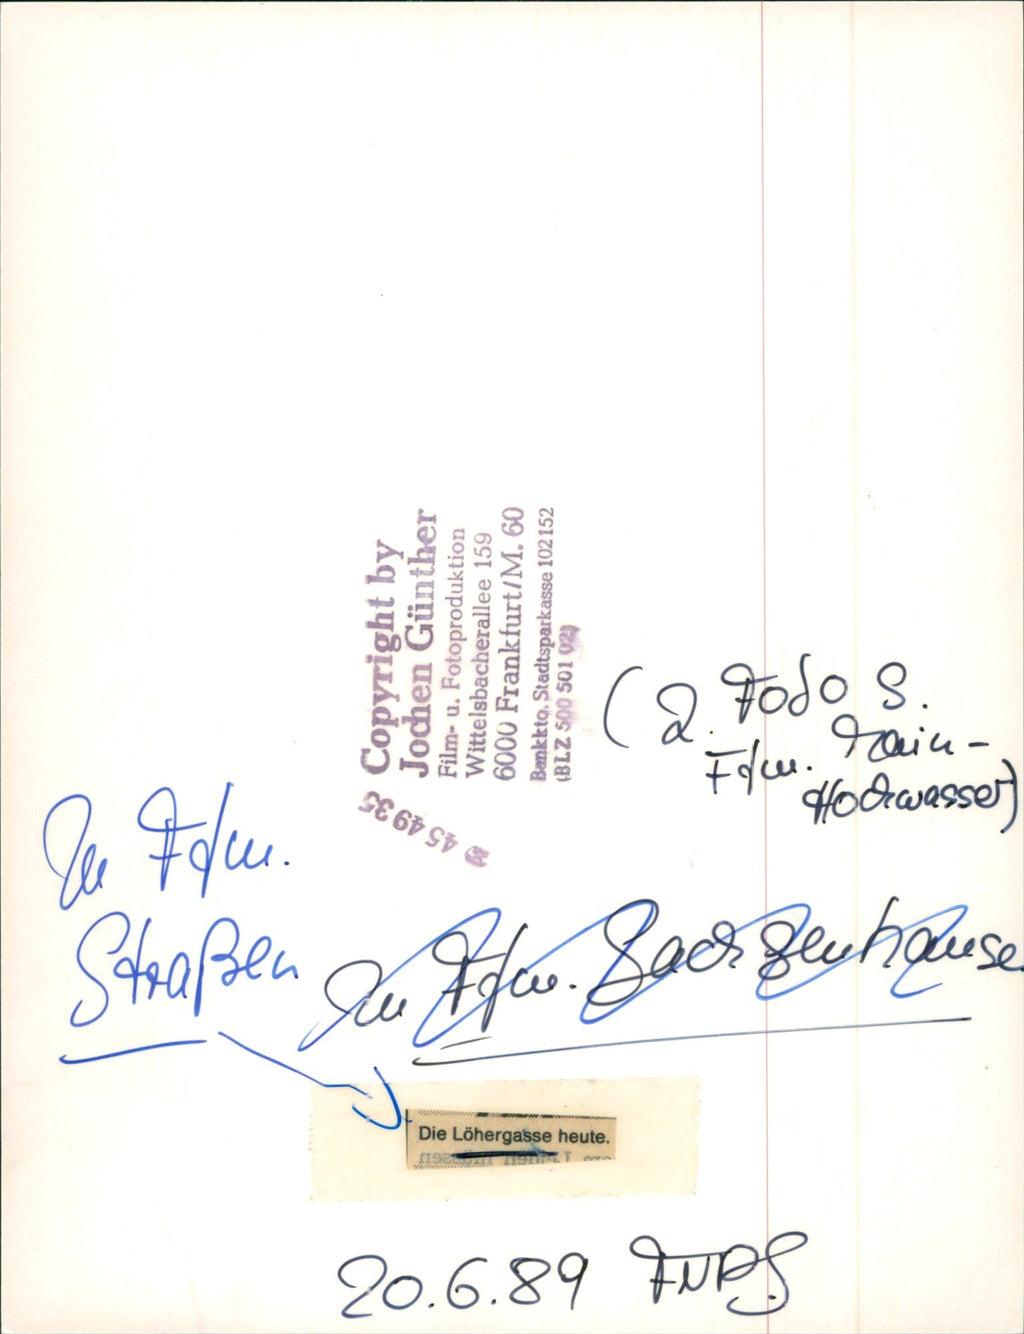 Copyright by
Jochen Günther
Film- u. Fotoproduktion
Wittelsbacherallee 159
6000 Frankfurt/M. 60
Bankkto. Stadtsparkasse 102 152
(BLZ 500 501 02)
☎ 45 49 35
(2. Foto S.
Ffm. Main-
Hochwasser)
In Ffm.
Straßen
In Ffm. Sachsenhausen
Die Löhergasse heute.
20.6.89 FNP